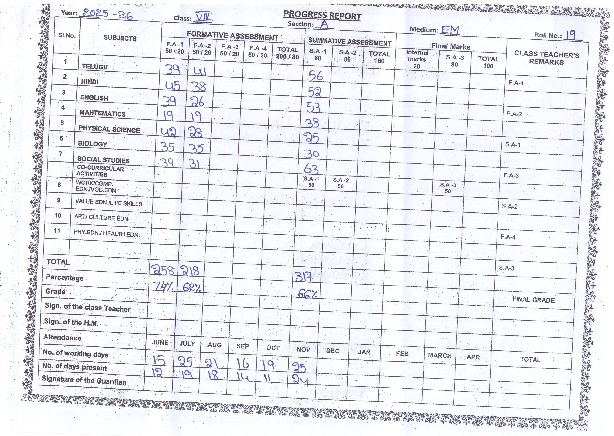 PROGRESS REPORT
Year: 2025-26 Class: VIII Section: A Medium: EM Roll No.: 19
Sl.No. SUBJECTS FORMATIVE ASSESSMENT SUMMATIVE ASSESSMENT Final Marks CLASS TEACHER'S REMARKS
F.A-1 50 / 20 F.A-2 50 / 20 F.A-3 50 / 20 F.A-4 50 / 20 TOTAL 200 / 80 S.A-1 80 S.A-2 TOTAL 160 Internal marks 20 S.A-3 80 TOTAL 100
1 TELUGU 39 41 56 F.A-1
2 HINDI 45 38 52
3 ENGLISH 39 26 53 F.A-2
4 MATHEMATICS 19 19 38
5 PHYSICAL SCIENCE 42 28 25 S.A-1
6 BIOLOGY 35 35 30
7 SOCIAL STUDIES 39 31 63 F.A-3
CO-CURRICULAR ACTIVITIES S.A-1 50 S.A-2 50 S.A-3 50
8 WORK/COMP. EDN./VOC.EDN S.A-2
9 VALUE EDN./LIFE SKILLS
10 ART/ CULTURE EDN F.A-4
11 PHY.EDN / HEALTH EDN.
TOTAL 258 218 317 S.A-3
Percentage 74% 62% 66%
Grade FINAL GRADE
Sign. of the class Teacher
Sign. of the H.M.
Attendance JUNE JULY AUG SEP OCT NOV DEC JAN FEB MARCH APR TOTAL
No. of working days 15 25 21 16 19 25
No. of days present 12 19 18 14 11 24
Signature of the Guardian